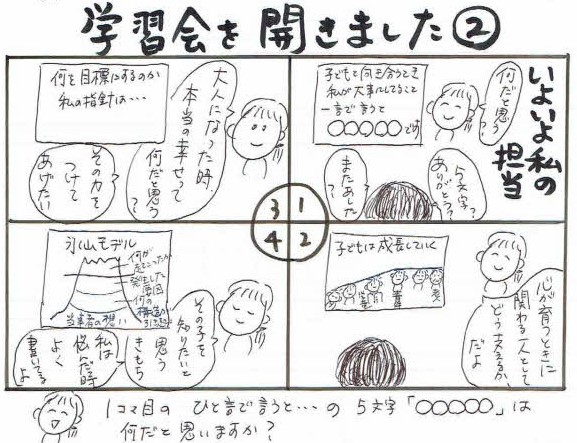 学習会を開きました②
いよいよ私の
担当
何だと思う
?
子どもと向き合うとき
私が大事にしてること
一言で言うと
○○○○○です
5文字?
ありがとう?
またあした?
1
2
3
4
心が育つときに
関わる一人として
どう支えるか
だよ
子どもは成長していく
大人になった時、
本当の幸せって
何だと思う
?
何を目標にするのか
私の指針は…
その力を
つけて
あげたい
その子を
知りたいと
思う
きもち
氷山モデル
何が
起こったか
発生した
要因
何の
構造
当事者の想い
私は
悩んだ時
よく
書いてる
よ
1コマ目の ひと言で言うと…の 5文字「○○○○○」は
何だと思いますか?